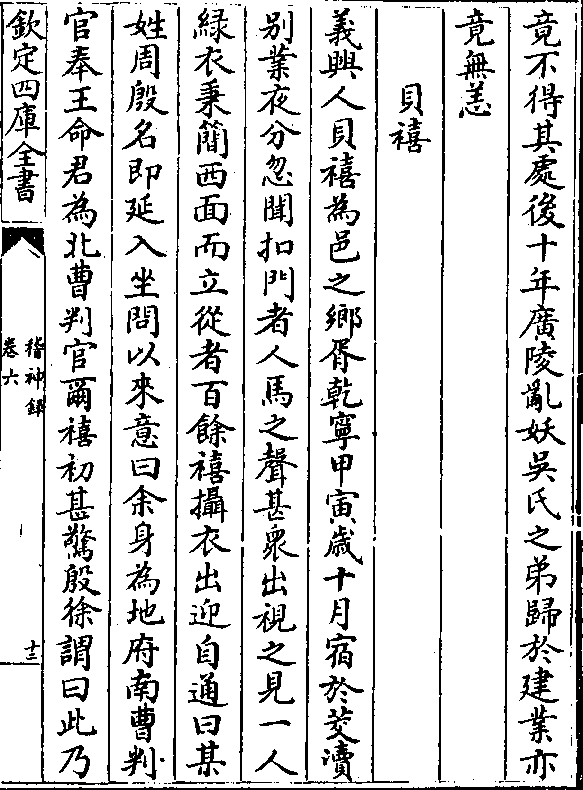 竟不得其處後十年廣陵亂妖吳氏之弟歸於建業亦
竟無恙
貝禧
義興人貝禧為邑之鄉胥乾寧甲寅歲十月宿於茭瀆
别業夜分忽聞扣門者人馬之聲甚衆出視之見一人
緑衣秉簡西面而立從者百餘禧攝衣出迎自通曰某
姓周殷名即延入坐問以來意曰余身為地府南曹判
官奉王命君為北曹判官爾禧初甚驚殷徐謂曰此乃
欽定四庫全書
稽神録
卷六
十三